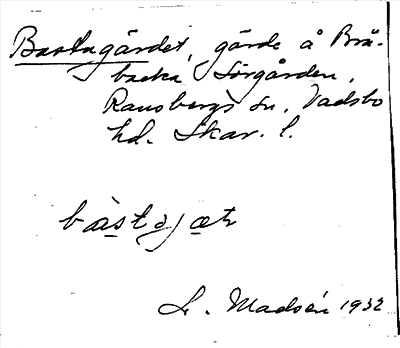 Bastugärdet, gärde å Brä-
backa Sörgården,
Ransbergs sn, Vadsbo
hd. Skar. l.
bàstəjæt
L. Madsén 1932